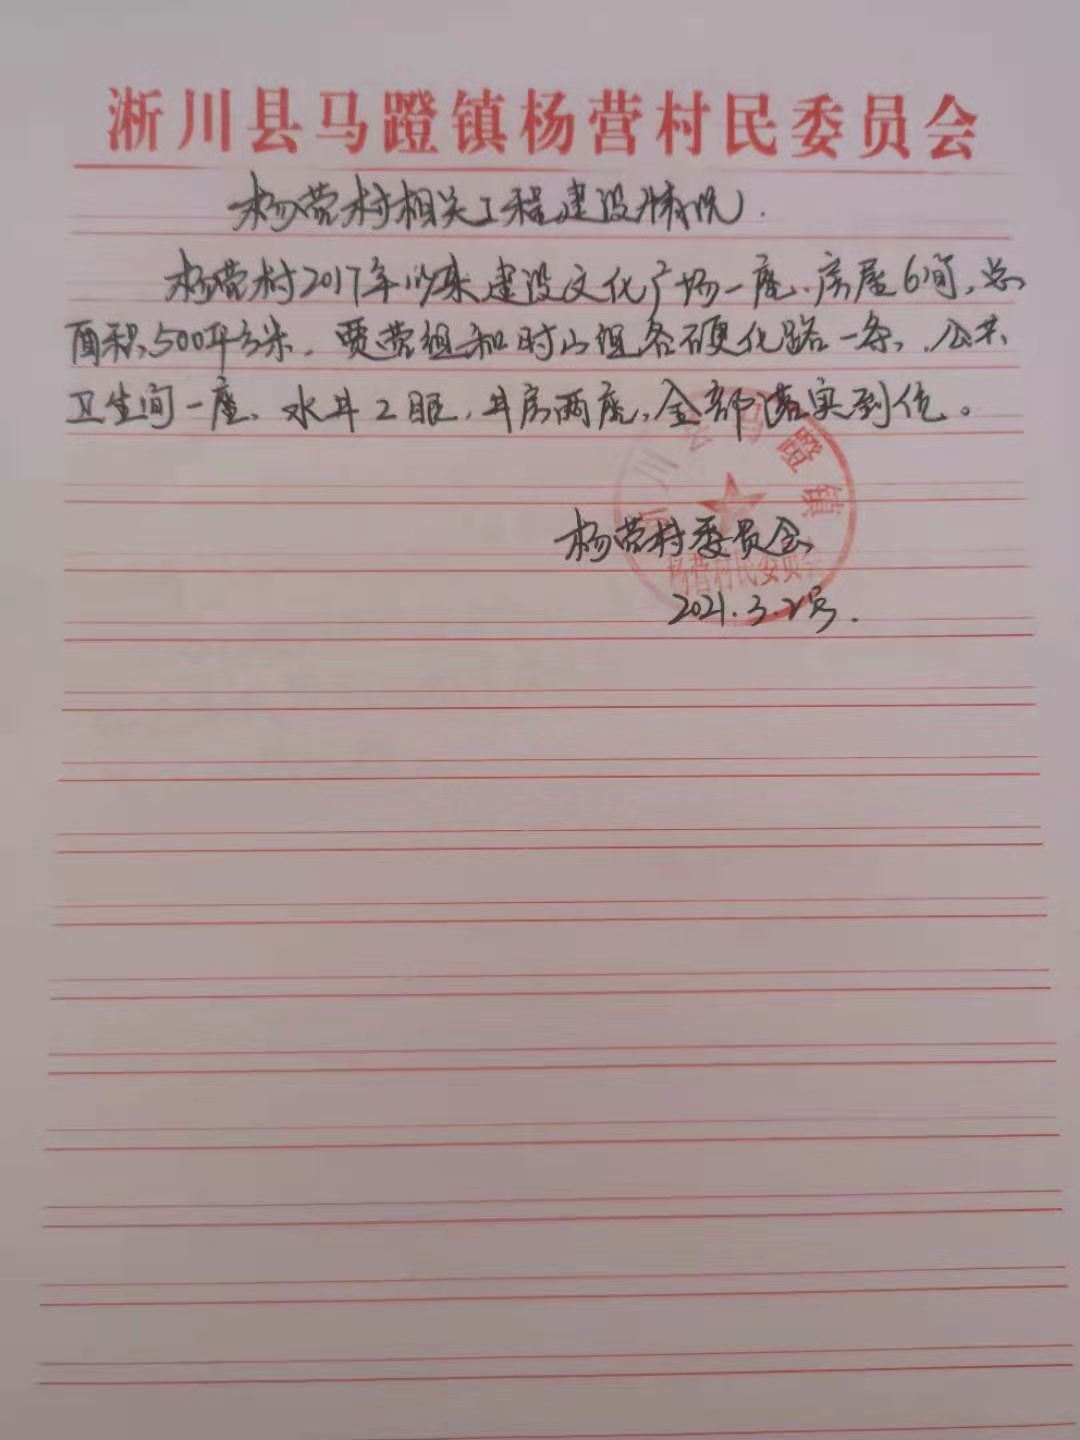 淅川县马蹬镇杨营村民委员会
杨营村相关工程建设情况.
杨营村2017年以来建设文化广场一座、房屋6间,总
面积500平方米. 贾营组和时山组各硬化路一条、公共
卫生间一座、水井2眼,井房两座,全部落实到位。
川县马蹬镇
杨营村民委员会
杨营村委员会
2021.3.2号.